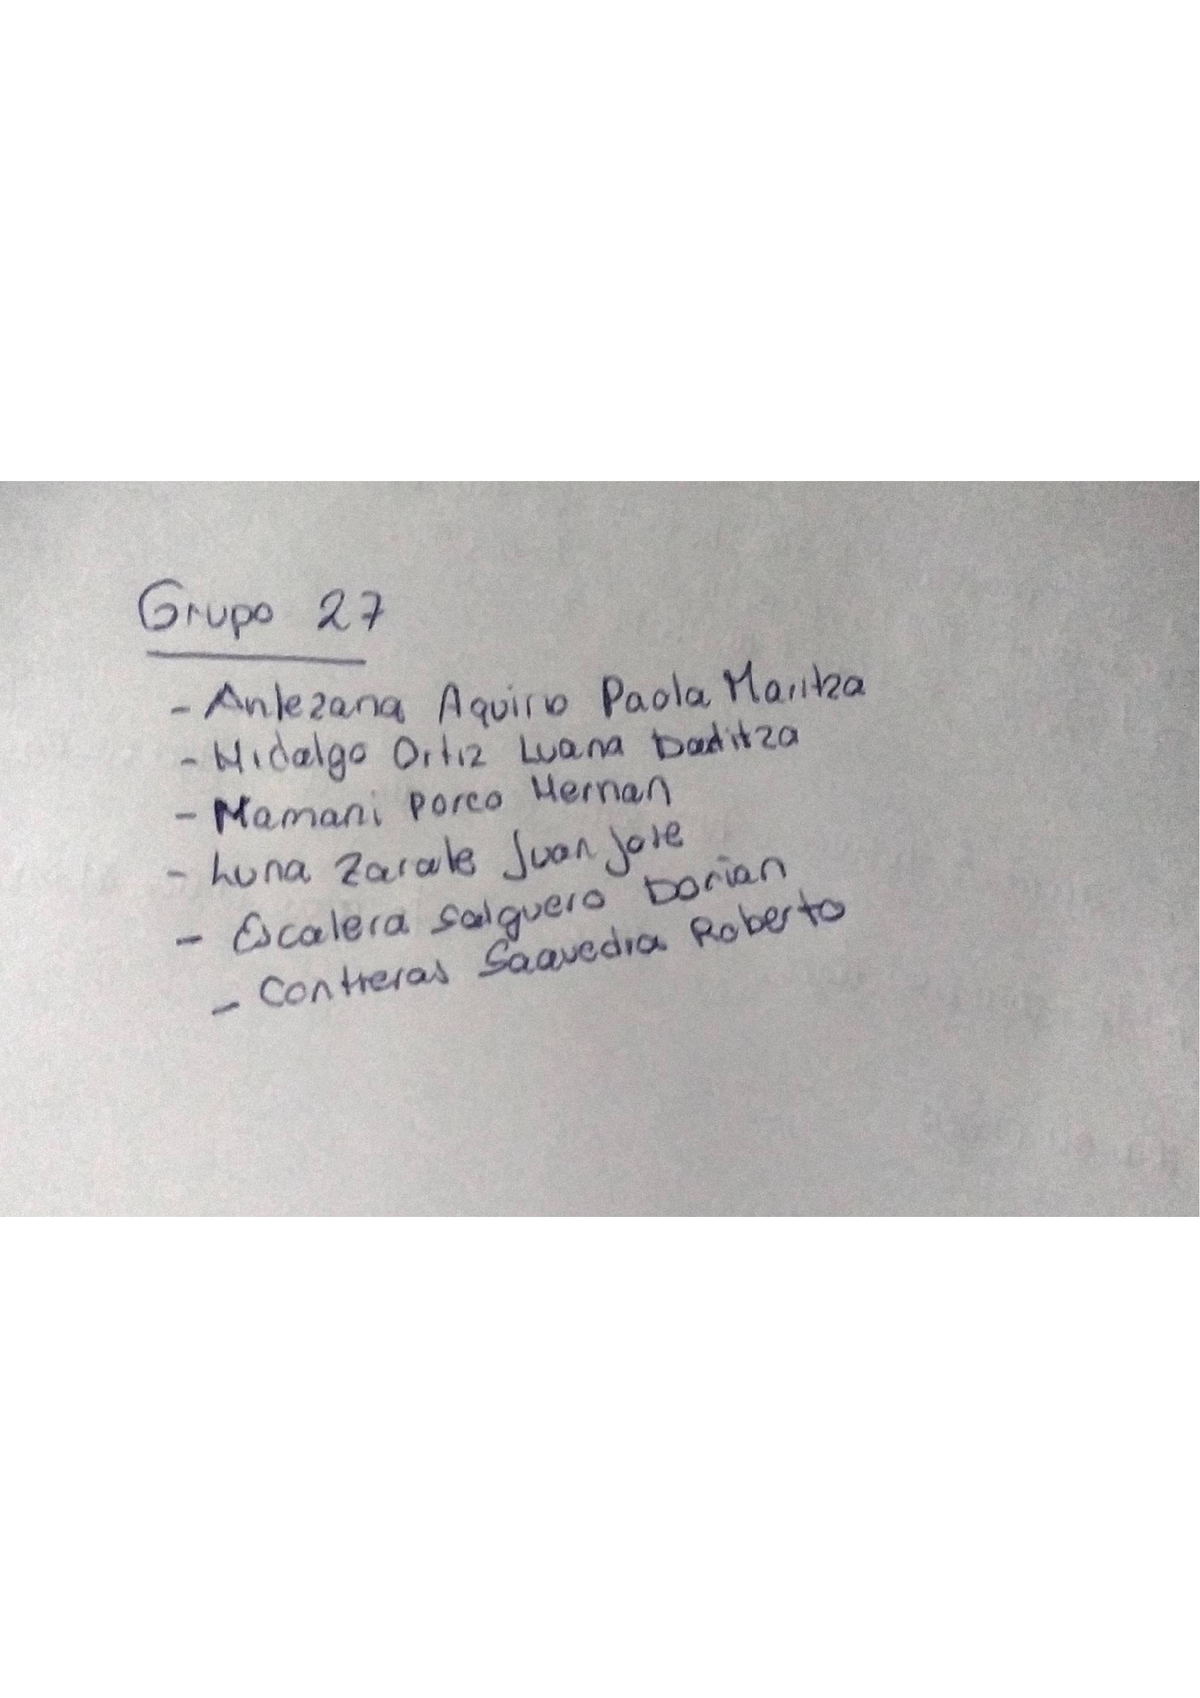 Grupo 27
- Antezana Aquino Paola Maritza
- Hidalgo Ortiz Luana Daditza
- Mamani Porco Hernan
- Luna Zarate Juan Jose
- Escalera Salguero Dorian
- Contreras Saavedra Roberto